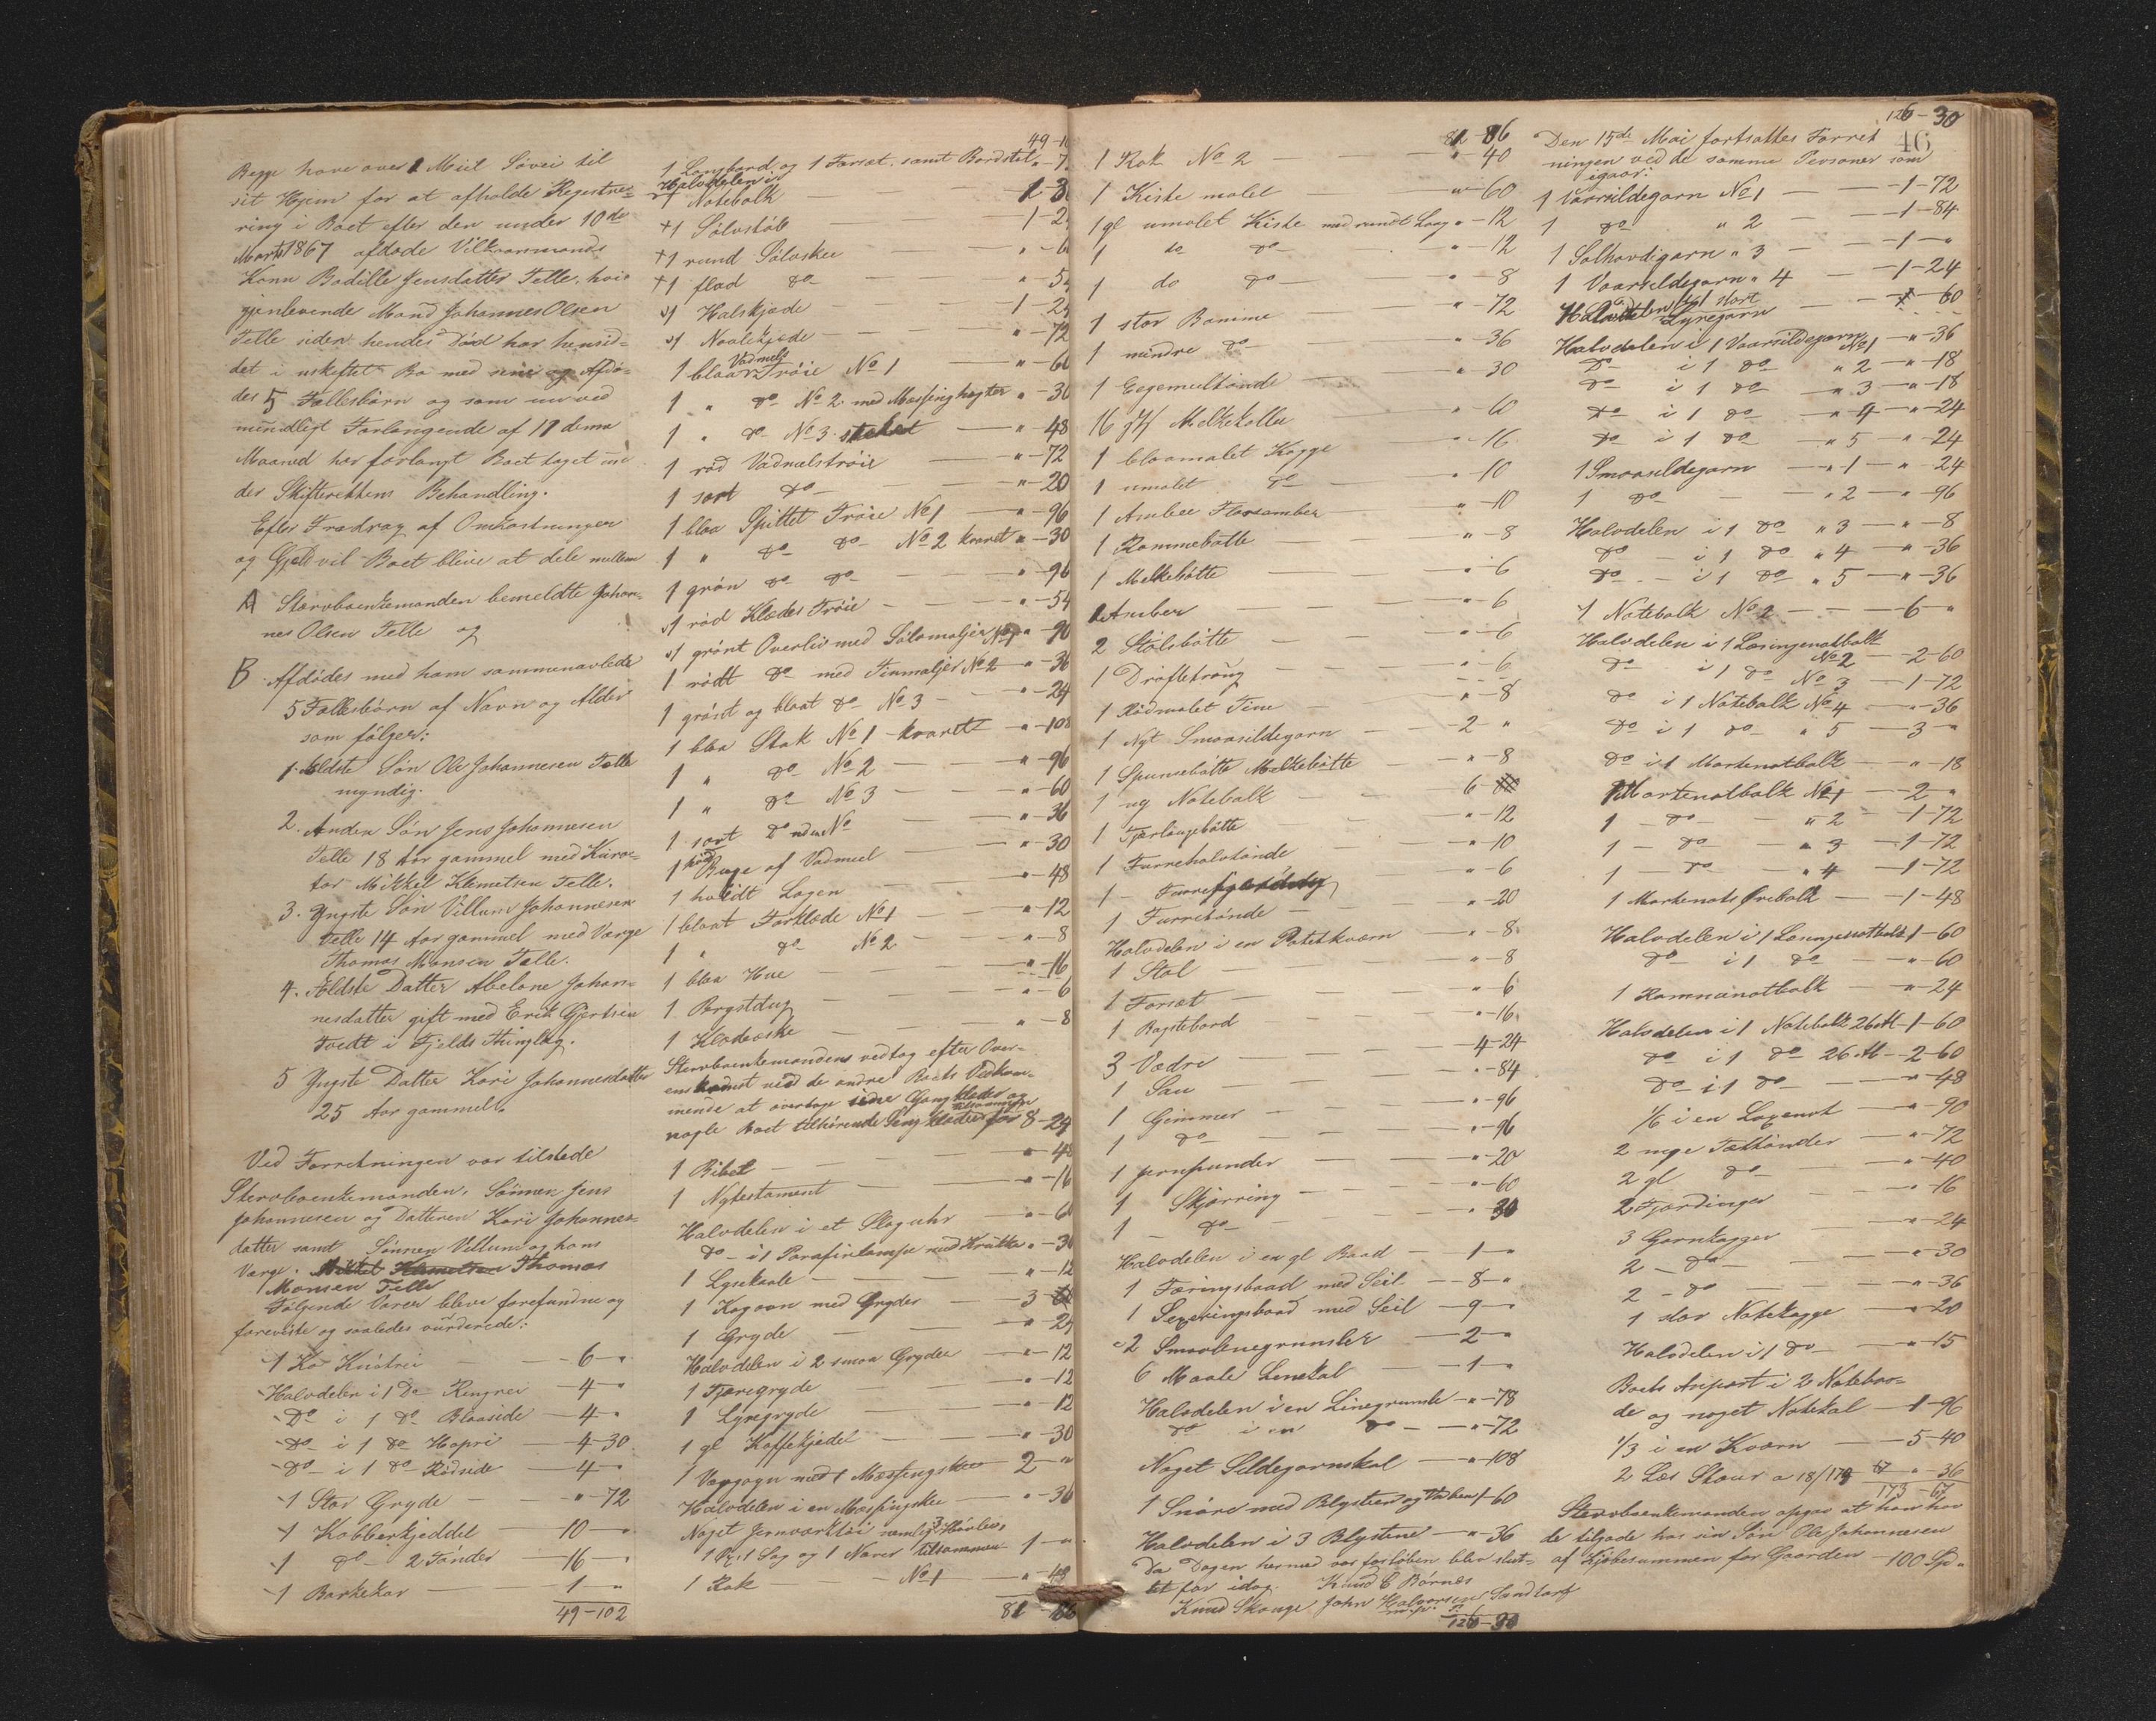 Begge have over 1 Miil Søvei til
sit Hjem for at afholde Registre-
ring i Boet efter den under 10de
Marts 1867 afdøde Vilkaarsmands
Kone Bodille Jensdatter Telle, hvis
gjenlevende Mand Johannes Olsen
Telle siden hendes Død har hensid-
det i uskiftet Bo med sine og Afdø-
des 5 Fællesbørn og som nu ved
mündligt Forlangende af 11 denne
Maaned har forlangt Boet taget un-
der Skifterettens Behandling.
Efter Fradrag af Omkostninger
og Gjeld vil Boet blive at dele mellem
A Stervboenkemanden bemeldte Johan-
nes Olsen Telle og
B Afdødes med ham sammenavlede
5 Fællesbørn af Navn og Alder
som følger:
1. Ældste Søn Ole Johannesen Telle
myndig.
2. Anden Søn Jens Johannesen
Telle 18 Aar gammel med Kura-
tor Mikkel Klemetsen Telle.
3. Yngste Søn Villum Johannesen
Telle 14 Aar gammel med Værge
Thomas Monsen Telle.
4. Ældste Datter Abelone Johan-
nesdatter gift med Erik Gjertsen
Tvedt i Fjelds Thinglag.
5 Yngste Datter Kari Johannesdatter
25 Aar gammel.
Ved Forretningen var tilstede
Stervboenkemanden, Sønnen Jens
Johannesen og Datteren Kari Johannes-
datter samt Sønnen Villum og hans
Værge. Mikkel Klemetsen Thomas
Monsen Telle
Følgende Varer bleve forefundne og
foreviste og saaledes vurderede:
1 Ko Knøtrei — 6 - "
Halvdelen i 1 Do Ringrei — 4 - "
Do i 1 Do Blaaside — 4 - "
Do i 1 do Hopri — 4 - 30
Do i 1 Do Rødside — 4 - "
1 Stor Gryde — " - 72
1 Kobberkjeddel — 10 - "
1 do 2 Tønder — 16 - "
1 Barkekar — 1 - "
49 - 102
49 - 10
1 Langbord og 1 Forset samt Bordstol " - 7
Halvdelen i
1 Notebolk — 1 - 3
+1 Sølvstøb — 1 - 2
+1 rund Sølvskee — " - 6
+1 flad do — " - 54
1 Halskjæde — 1 - 24
1 Naalekjæde — " - 72
Vadmels
1 blaa Trøie No 1 — " - 60
1 " do No 2 med Messinghægter " - 30
1 " do No 3 — " - 48
1 rød Vadmelstrøie — " - 72
1 sort do — " - 20
1 blaa Spittet Trøie No 1 — " - 96
1 " do do No 2 kvaret " - 30
1 grøn do do — " - 96
1 rød Klædes Trøie — " - 54
1 grønt Overliv med Sølvmaljer No 1 " - 90
1 rødt do med Tinmaljer No 2 — " - 36
1 grønt og blaat do No 3 — " - 24
1 blaa Stak No 1 kvaret — " - 108
1 " do No 2 — " - 96
1 " do No 3 — " - 60
1 sort do uden No — " - 36
1 Buxe af Vadmel — " - 30
1 hvidt Lagen — " - 48
1 blaat Forklæde No 1 — " - 12
1 " do No 2 — " - 8
1 blaa Hue — " - 16
1 Brystdug — " - 6
1 Klædeæske — " - 8
Stervboenkemanden vedtog efter Over-
enskomst med de andre Boets Vedkom-
mende at overtage sine Gangklæder og
nogle Boet tilhørende Sengklæder for 8 - 24
1 Bibel — " - 48
1 Nytestament — " - 16
Halvdelen i et Slaguhr — " - 60
do i 1 Parafinlampe med Krukke " - 30
1 Lysekaale — " - 12
1 Kogovn med Gryder — 3
1 Gryde — " - 24
Halvdelen i 2 smaa Gryder — " - 12
1 Tjæregryde — " - 12
1 Lysegryde — " - 12
1 gl Kaffekjedel — " - 30
1 Vægogn med 1 Messingskee 2 - "
Halvdelen i en Messingskee — " - 36
Noget Jernværktøi nemlig 3 Høvler,
1 Øx, 1 Sag og 1 Naver tilsammen 1 - "
1 Rok No 1 — " - 48
81 - 86
81 - 86
1 Rok No 2 — " - 40
1 Kiste malet — " - 60
1 gl umalet Kiste med rundt Laag " - 12
1 do do " - 12
1 do do " - 8
1 stor Bomme " - 72
1 mindre do " - 36
1 Eegemeeltønde " - 30
16 gl Melkekoller " - 60
1 blaamalet Kagge " - 16
1 umalet do " - 10
1 Ambee " - 10
1 Rømmebøtte " - 8
1 Melkebøtte " - 6
1 Amber " - 6
2 Stølsbøtte " - 6
1 Drøftetraug " - 6
1 Rødmalet Tine " - 8
1 Nyt Smaasildegarn 2 - "
1 Spunsebøtte Melkebøtte " - 8
1 ny Notebolk 6
1 Tjærlaugebøtte " - 12
1 Furrehalvtønde " - 10
1 Furre " - 6
1 Furretønde " - 20
Halvdelen i en Potetkværn " - 8
1 Stol " - 8
1 Forset " - 6
1 Bagstebord " - 16
3 Vædre 4 - 24
1 Sau " - 84
1 Gimmer " - 96
1 do " - 96
1 Jernpunder " - 20
1 Skjæring " - 60
1 do " - 30
Halvdelen i en gl Baad 1 - "
1 Færingsbaad med Seil 8 - "
1 Sexæringsbaad med Seil 9 - "
2 Smaalinegrunster 2 - "
6 Maale Linekal 1 - "
Halvdelen i en Linegrunste " - 78
do i en do " - 72
Noget Sildegarnskal " - 108
1 Snøre med Blysteen og Vaben 1 - 60
Halvdelen i 3 Blystene " - 36
Da Dagen hermed var forløben blev slut-
tet for idag. Knud C Børnes
Knud Skauge John Halvorsen Sundtorf
m. f. P.
126 - 30
126 - 30
46
Den 15de Mai fortsattes Forret
ningen ved de samme Personer som
igaar:
1 Vaarsildegarn No 1 — 1 - 72
1 do " 2 — 1 - 84
1 Solhovdigarn " 3 — 1 - "
1 Vaarsildegarn " 4 — 1 - 24
Halvdelen i 1 stort
Lyregarn — 60
Halvdelen i 1 Vaarsildegarn No 1 " - 36
Do i 1 do " 2 — " - 18
Do i 1 do " 3 — " - 18
Do i 1 do " 4 — " - 24
Do i 1 do " 5 — " - 24
1 Smaasildegarn — " 1 — " - 24
1 do — " 2 — " - 96
Halvdelen i 1 do " 3 — " - 8
Do i 1 do " 4 — " - 36
Do i 1 do " 5 — " - 36
1 Notebolk No 2 — 6 - "
Halvdelen i 1 Læsingsnotbolk
No 2 — 2 - 60
Do i 1 do No 3 — 1 - 72
Do i 1 Notebolk No 4 — " - 36
Do i 1 do " 5 — 3 - "
Do i 1 Mortenotbolk — " - 18
1 Mortenotbolk No 1 — 2 - "
1 - do " 2 — 1 - 72
1 - do " 3 — 1 - 72
1 - do " 4 — 1 - 72
1 Mortenots Ørebolk — 1 - 48
Halvdelen i 1 Læsingsnotbolk 1 - 60
do i 1 do " - 60
1 notbolk — " - 24
Halvdelen i 1 Notebolk 26 Al 1 - 60
do i 1 do 26 Al 2 - 60
do i 1 do — " - 48
1/6 i en Laxenot — " - 90
2 nye Tættønder — " - 72
2 gl do — " - 40
2 Fjordinger — " - 16
3 Garnkagger — " - 24
2 - do — " - 30
2 - do — " - 36
1 stor Notekagge — " - 20
Halvdelen i 1 do — " - 15
Boets Anpart i 2 Notebaa-
de og noget Notekal — 1 - 96
1/3 i en Kværn — 5 - 40
2 Læs Skaur a 18/ — " - 36
173 - 67
Stervboenkemanden opgav at han har
de tilgode hos sin Søn Ole Johannesen
af Kjøbesummen for Gaarden — 100 Sp "